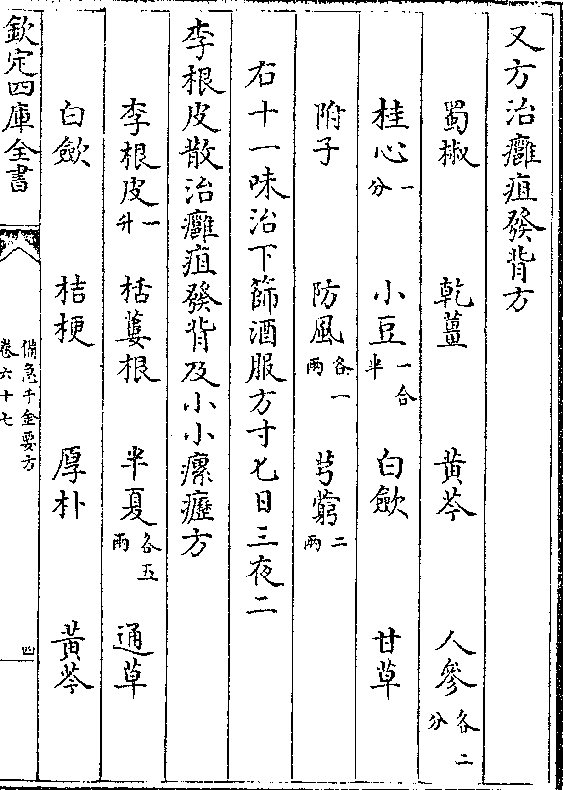 又方治癰疽發背方
蜀椒 乾薑 黄芩 人參各二分
桂心一分 小豆一合半 白歛 甘草
附子 防風各一兩 芎藭二兩
右十一味治下篩酒服方寸匕日三夜二
李根皮散治癰疽發背及小小瘰癧方
李根皮一升 栝蔞根 半夏各五兩 通草
白歛 桔梗 厚朴 黄芩
欽定四庫全書
備急千金要方
卷六十七
四